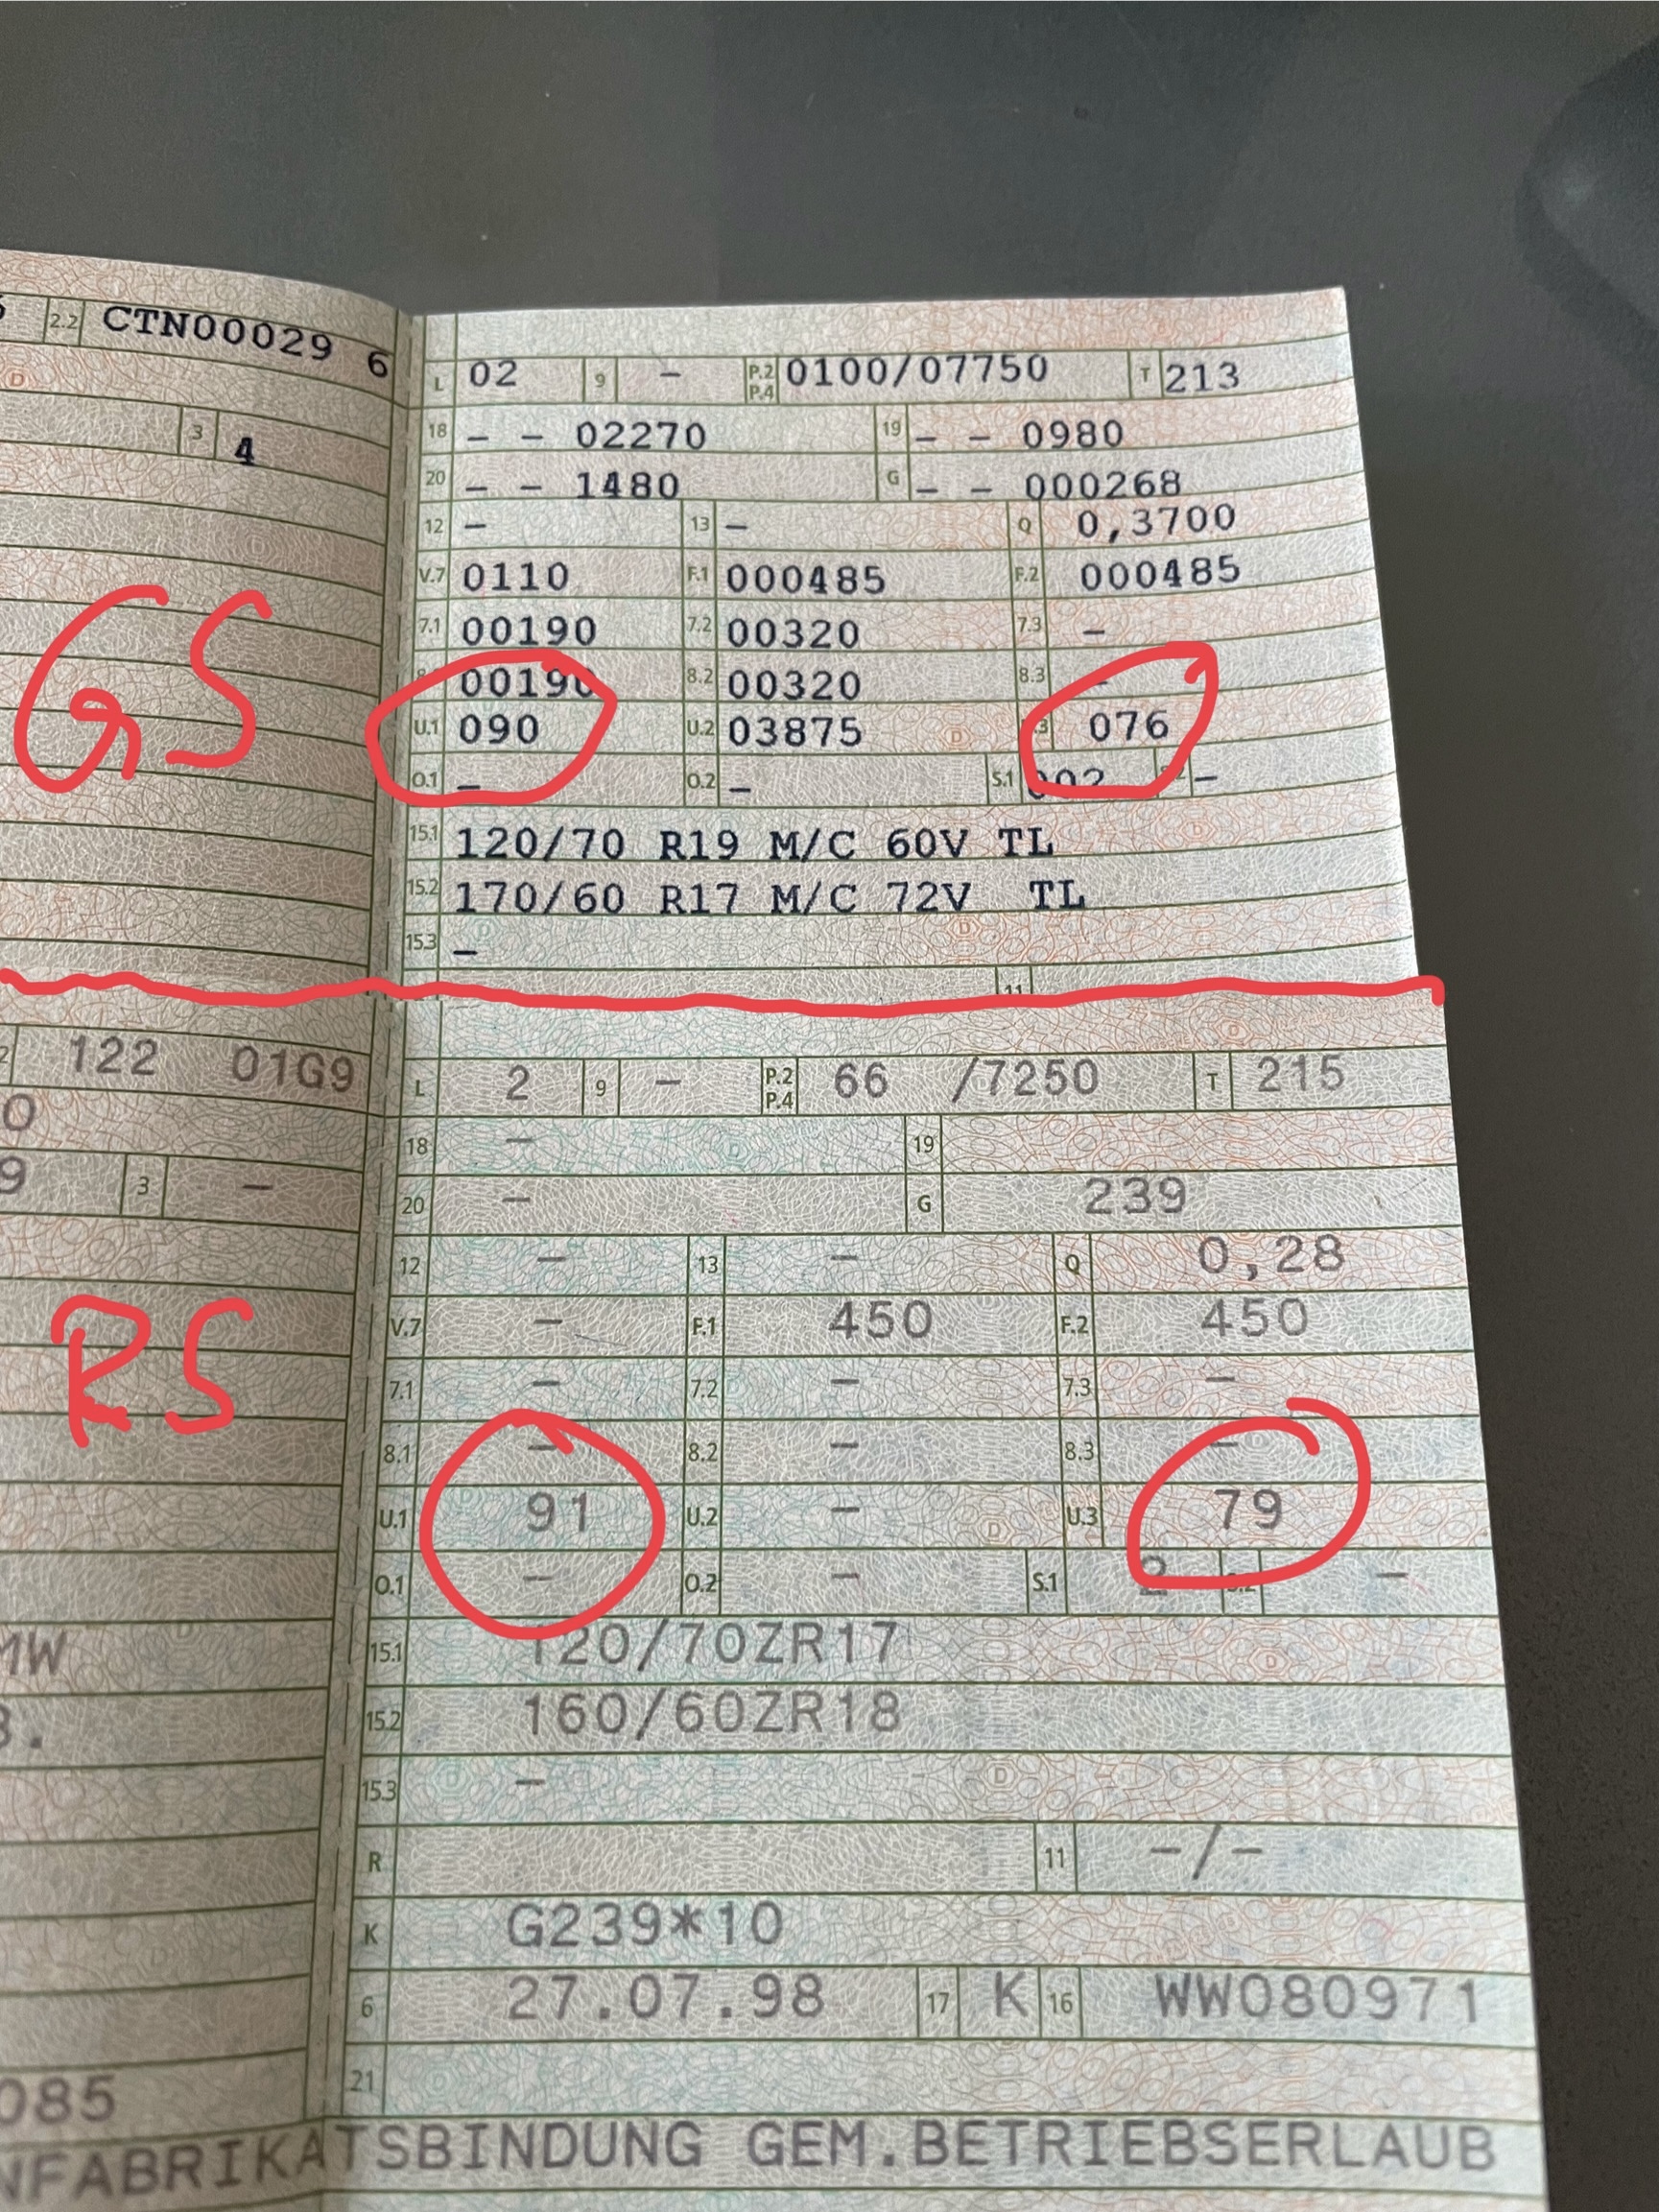 2.2 CTN00029 6
3 4
L 02 9 – P.2 P.4 0100/07750 T 213
18 – – 02270 19 – – 0980
20 – – 1480 G – – 000268
12 – 13 – Q 0,3700
V.7 0110 F.1 000485 F.2 000485
7.1 00190 7.2 00320 7.3 –
00190 8.2 00320 8.3 –
GS
U.1 090 U.2 03875 076
O.1 – O.2 – S.1 002 –
15.1 120/70 R19 M/C 60V TL
15.2 170/60 R17 M/C 72V TL
15.3 –
11
122 01G9
L 2 9 – P.2 P.4 66 /7250 T 215
18 – 19
3 –
20 – G 239
12 – 13 – Q 0,28
V.7 – F.1 450 F.2 450
RS
7.1 – 7.2 – 7.3 –
8.1 – 8.2 – 8.3 –
U.1 91 U.2 – U.3 79
O.1 – O.2 – S.1 2 –
15.1 120/70ZR17
15.2 160/60ZR18
15.3 –
R 11 –/–
K G239*10
6 27.07.98 17 K 16 WW080971
21
085
NFABRIKATSBINDUNG GEM.BETRIEBSERLAUB